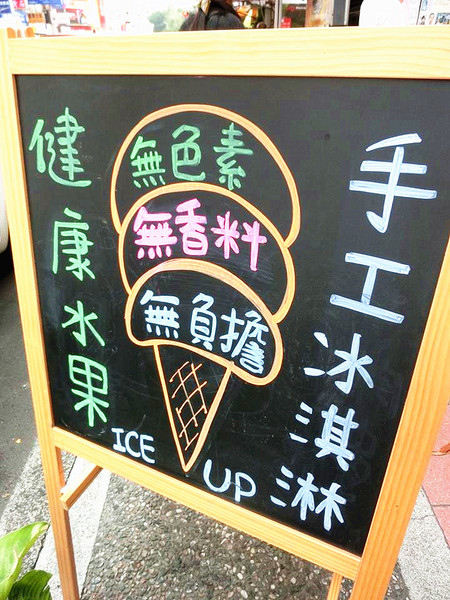 手工冰淇淋
無色素
無香料
無負擔
健康水果
ICE UP